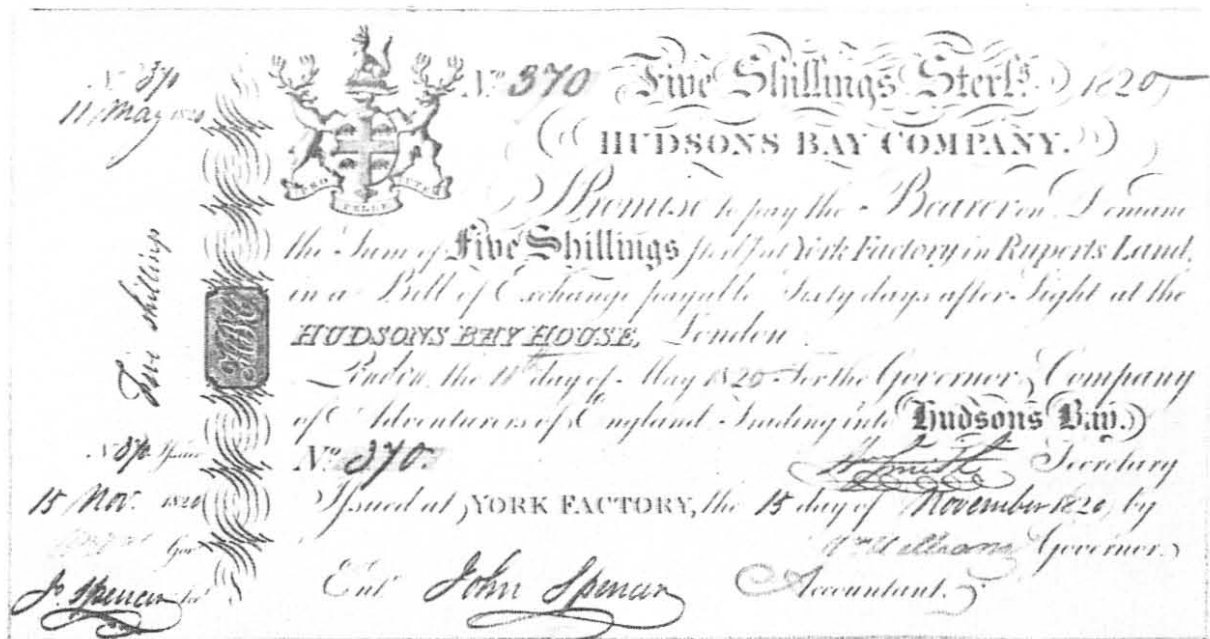 No 370
11 May 1820
Five Shillings
No 370
15 Nov. 1820
Gov.r
J. Spencer
HBC
PRO PELLE CUTEM
No 370 Five Shillings Sterlg. 1820
HUDSONS BAY COMPANY.
I Promise to pay the Bearer on Demand
the Sum of Five Shillings Sterlg at York Factory in Ruperts Land,
in a Bill of Exchange payable Sixty days after Sight at the
HUDSONS BAY HOUSE, London.
London, the 11th day of May 1820 For the Governor & Company
of Adventurers of England Trading into Hudsons Bay.
No 370.
Smith Secretary
Issued at YORK FACTORY, the 15 day of November 1820, by
Wm Williams Governor.
Ent.d John Spencer Accountant.